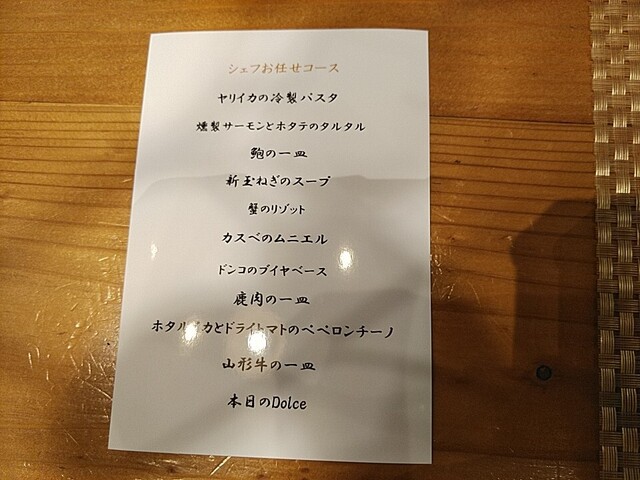 シェフお任せコース
ヤリイカの冷製パスタ
燻製サーモンとホタテのタルタル
鮑の一皿
新玉ねぎのスープ
蟹のリゾット
カスベのムニエル
ドンコのブイヤベース
鹿肉の一皿
ホタルイカとドライトマトのペペロンチーノ
山形牛の一皿
本日のDolce